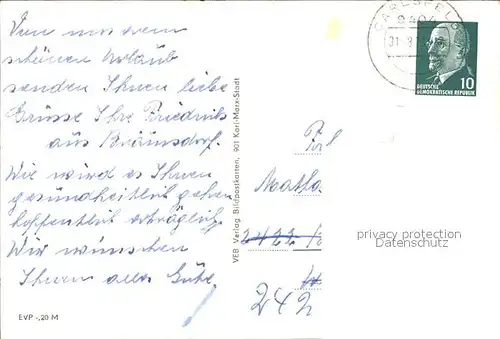 Von unserem
schönen Urlaub
senden Ihnen liebe
Grüsse Ihre Friedrichs
aus Bräunsdorf.
Wie wird es Ihnen
gesundheitlich gehen
hoffentlich erträglich.
Wir wünschen
Ihnen alles Gute.
EVP -,20 M
VEB Verlag Bildpostkarten, 901 Karl-Marx-Stadt
CARLSFELD
9404
10
DEUTSCHE
DEMOKRATISCHE REPUBLIK
Frl
Martha
privacy protection
Datenschutz
2422
242